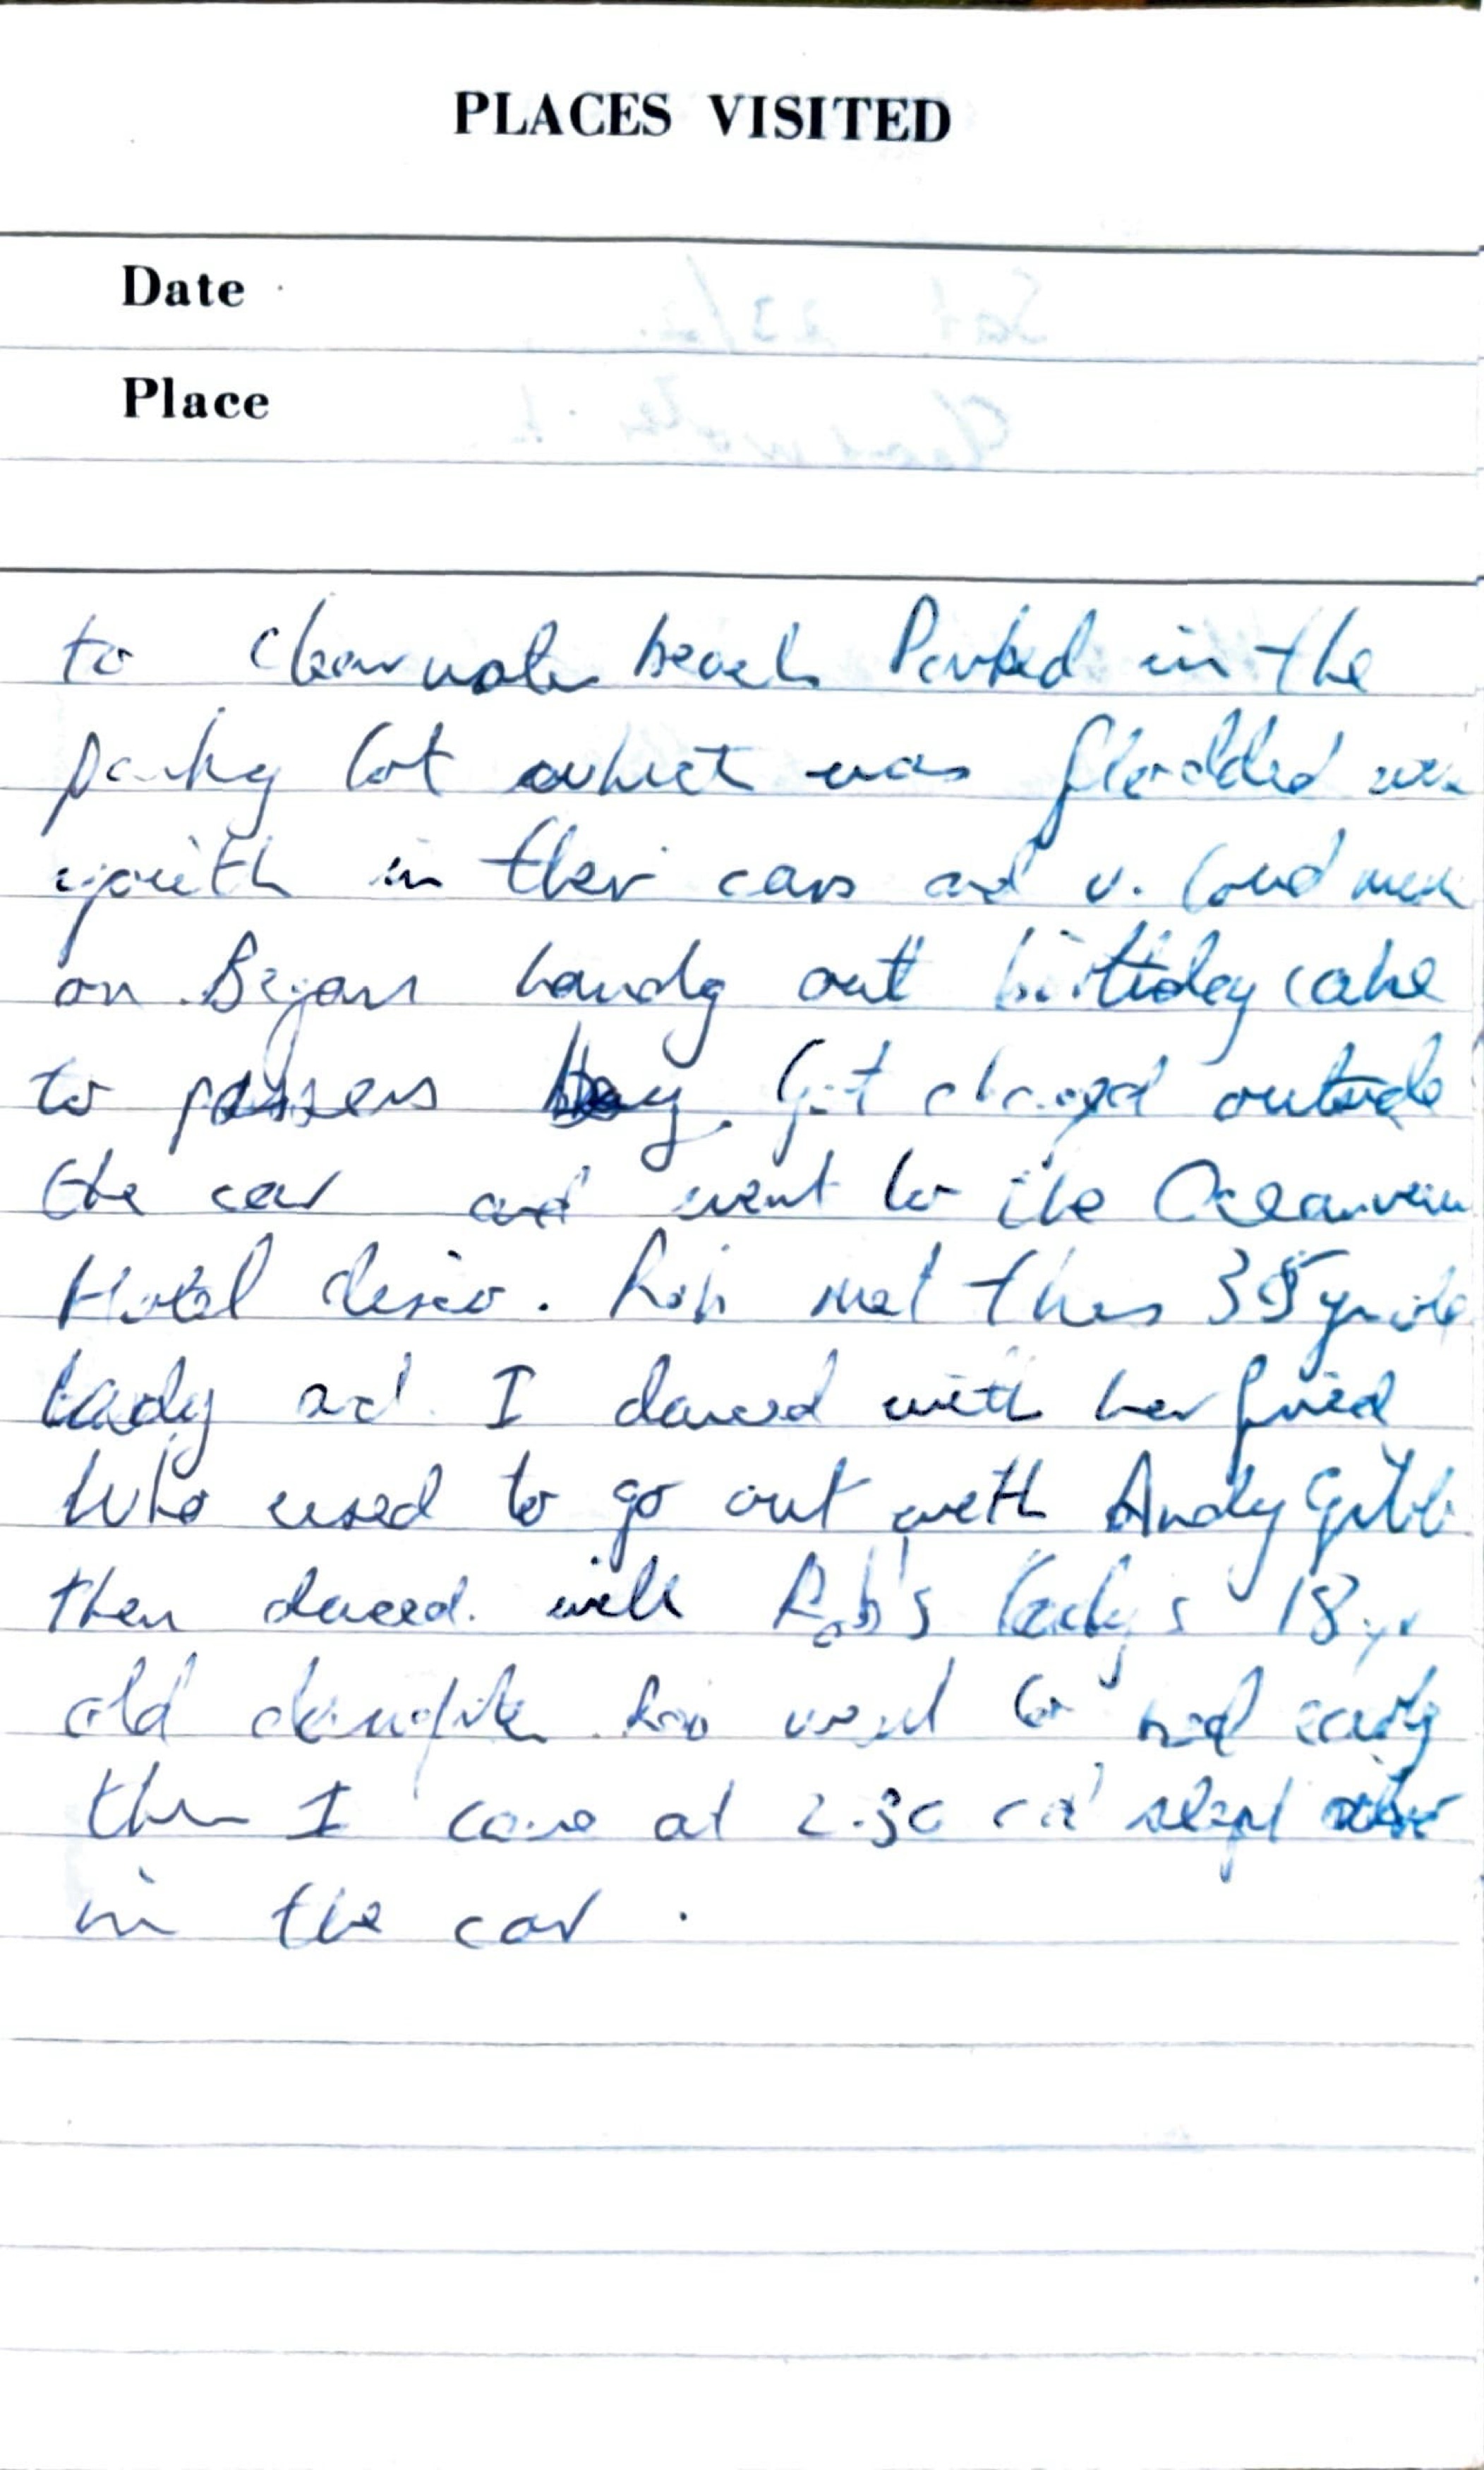 PLACES VISITED
Date
Place
to Clearwater beach Parked in the
parking lot which was flodded
youth in their cars and v. loud
on Bryan handg out birthday cake
to passers by. Got changed outside
the car and went to the Oceanview
Hotel disco. Rob met this 35 yr old
Lady and I danced with her fried
Who used to go out with Andy Gibb
then danced with Rob's lady's 18 yr
old daughter to bed early
then I came at 2.30 and slept
in the car.